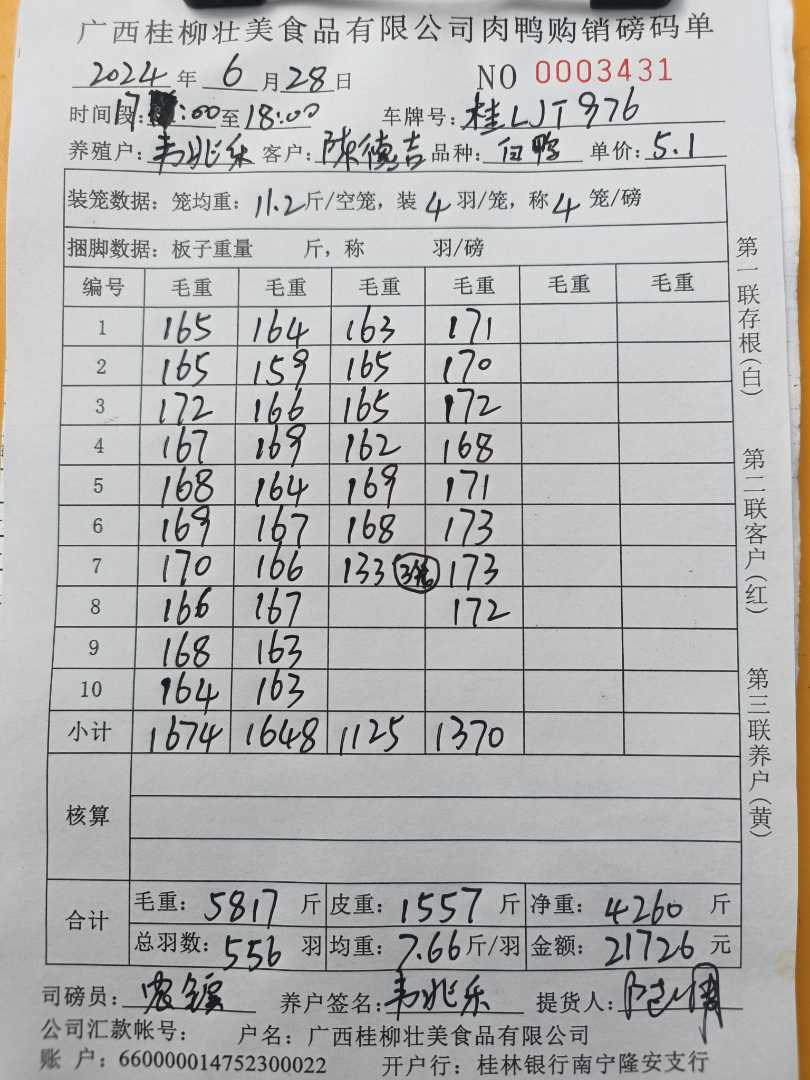 广西桂柳壮美食品有限公司肉鸭购销磅码单
2024 年 6 月 28 日 NO 0003431
时间段: 17:00 至 18:00 车牌号: 桂LJT976
养殖户: 韦兆乐 客户: 陈德吉 品种: 白鸭 单价: 5.1
装笼数据: 笼均重: 11.2 斤/空笼, 装 4 羽/笼, 称 4 笼/磅
捆脚数据: 板子重量 斤, 称 羽/磅
编号 毛重 毛重 毛重 毛重 毛重 毛重
1 165 164 163 171
2 165 159 165 170
3 172 166 165 172
4 167 169 162 168
5 168 164 169 171
6 169 167 168 173
7 170 166 133 3笼 173
8 166 167 172
9 168 163
10 164 163
小计 1674 1648 1125 1370
核算
合计
毛重: 5817 斤 皮重: 1557 斤 净重: 4260 斤
总羽数: 556 羽 均重: 7.66 斤/羽 金额: 21726 元
司磅员: 养户签名: 韦兆乐 提货人:
公司汇款帐号: 户名: 广西桂柳壮美食品有限公司
账 户: 660000014752300022 开户行: 桂林银行南宁隆安支行
第一联存根(白)
第二联客户(红)
第三联养户(黄)